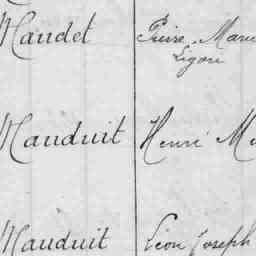 Maudet Pierre Marie
Ligori
Mauduit Henri M
Mauduit Léon Joseph